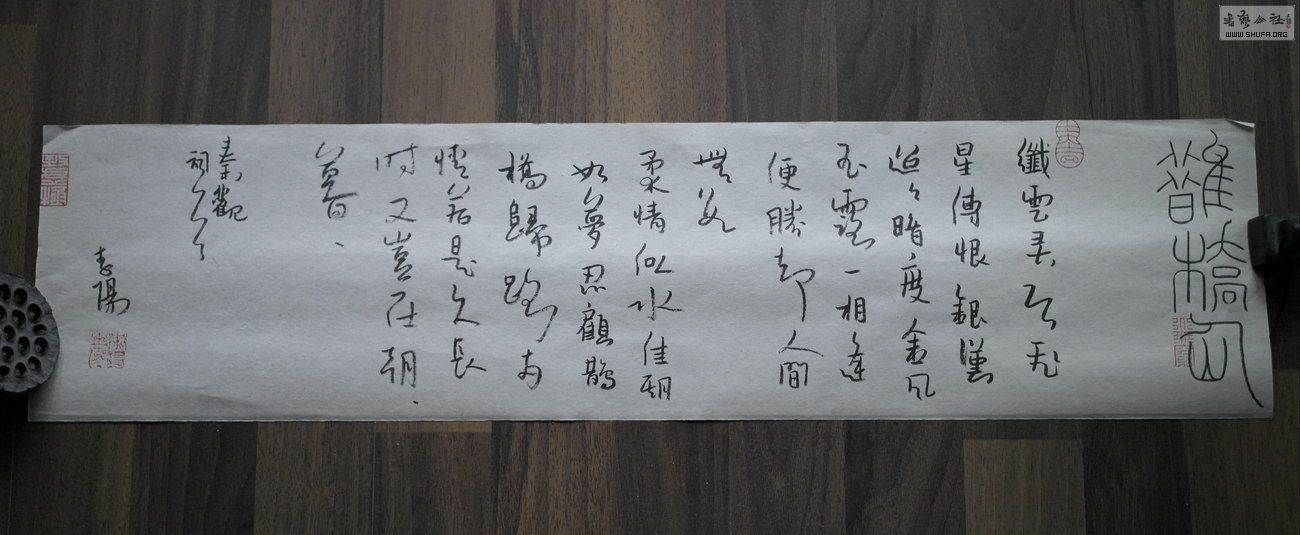 鵲橋仙
纖雲弄巧飛
星傳恨銀漢
迢々暗度金風
玉露一相逢
便勝却人間
無數
柔情似水佳期
如夢忍顧鵲
橋歸路兩
情若是久長
時又豈在朝、
暮、
秦觀
詞
志陽
書藝公社
WWW.SHUFA.ORG